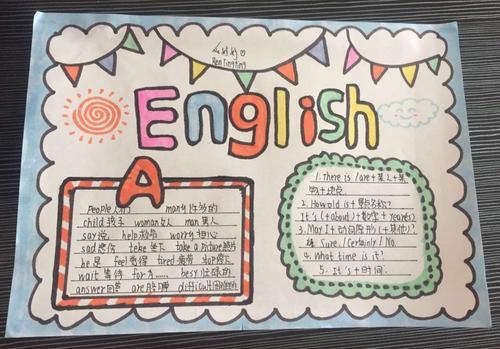 Ren Tingting
English
A
People 人们 many 许多的
child 孩子 woman 女人 man 男人
say 说 help 救命 worry 担心
sad 悲伤 teke 坐下 take a Picture 照片
be 是 feel 觉得 tired 疲劳 stop 停下
wait 等待 for 为…… besy 忙碌的
answer 回答 are difficult 困难的
1. There is / are + 某人 + 某
物 + 地点
2. How old is +
It's (+ about) + 数字 + years)
3. May I + 动词原形 (+ 其他)?
Sure. / Certainly / No.
4. What time is it?
5. It's + 时间.